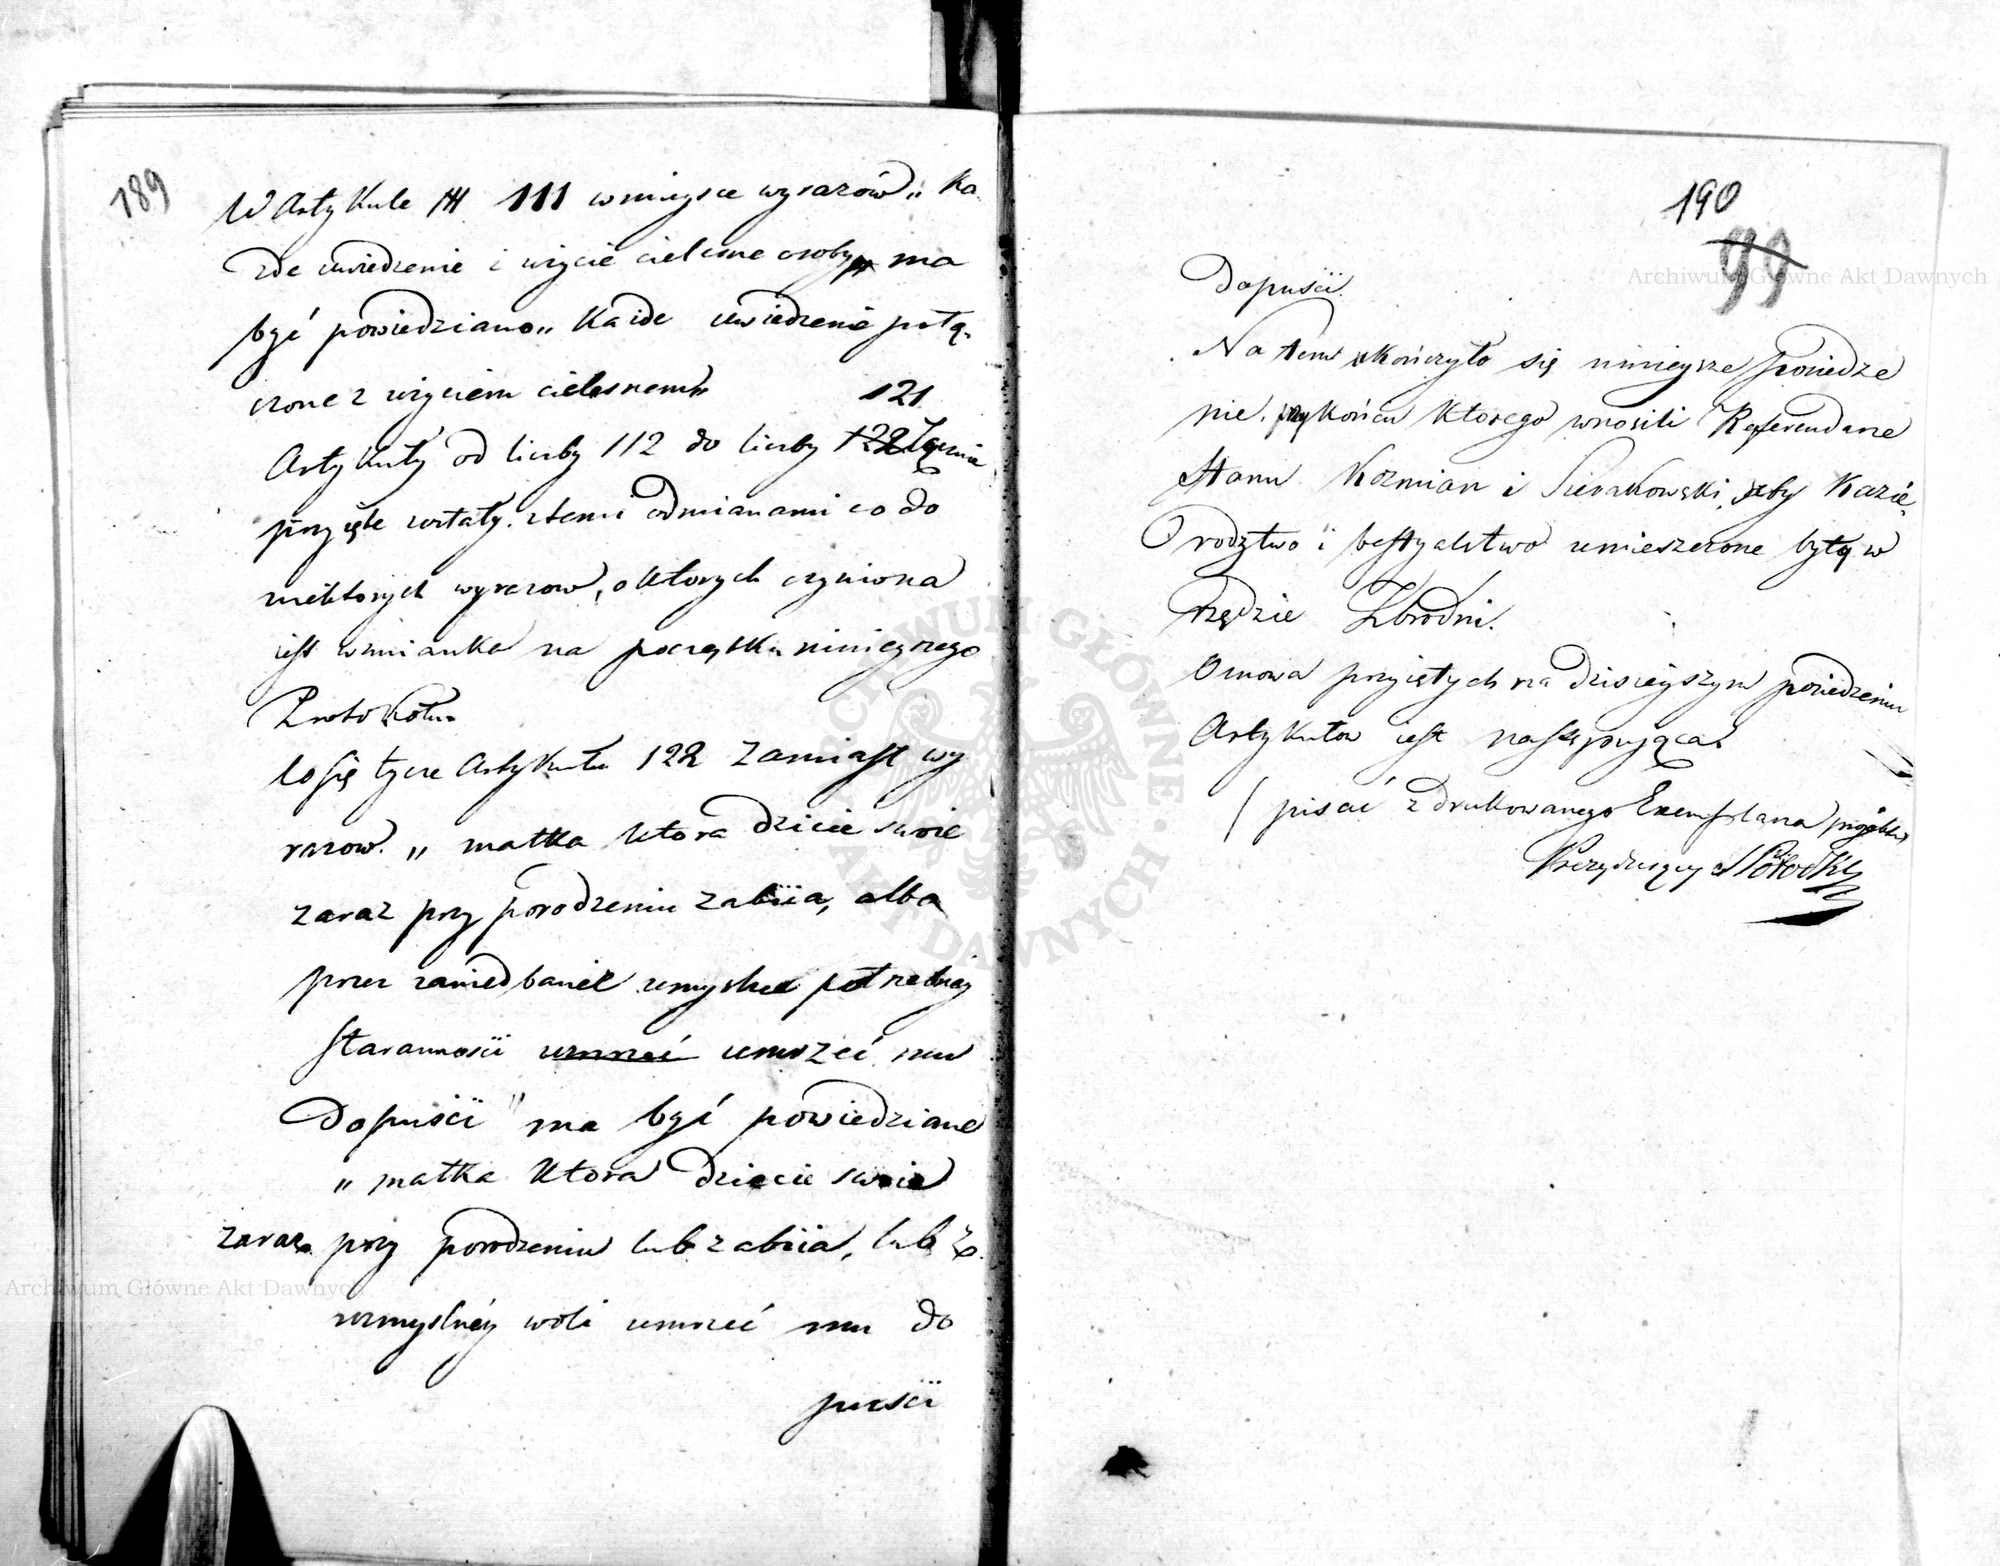 189
W Artykule 111 w mieysce wyrazów „ Ka
żde uwiedzenie i użycie cielesne osoby„ ma
być powiedziano „ Każde uwiedzenie połą-
czone z użyciem cielesnem„
121
Artykuły od liczby 112 do liczby 122 łącznie
przyięte zostały. z temi odmianami co do
niektorych wyrazow, o ktorych czyniona
iest wzmianka na początku ninieyszego
Protokołu.
Co się tycze Artykułu 122 zamiast wy
razow. „ matka ktora dziecie swoie
zaraz przy porodzeniu zabiia, albo
przez zaniedbanie umyslne potrzebney
starannosci umrzeć umrzeć mu
dopusci" ma być powiedziane
„ matka ktora dziecie swoie
zaraz przy porodzeniu lub zabiia, lub z
rozmyslney woli umrzeć mu do
pusci
190
99
Dopusci.
Na tem ukończyło się ninieysze posiedze
nie. przy końcu ktorego wnosili Referendarze
Stanu Kozmian i Sierakowski, żeby Kazi-
rodztwo i bestyalstwo umieszczone były w
rzędzie Zbrodni.
Osnowa przyiętych na dzisieyszym posiedzeniu
Artykułow iest następuiąca
( pisać z drukowanego Exemplarza projektu
Prezyduiący Potocki
Archiwum Główne Akt Dawnych
Archiwum Główne Akt Dawnych
ARCHIWUM GŁÓWNE AKT DAWNYCH